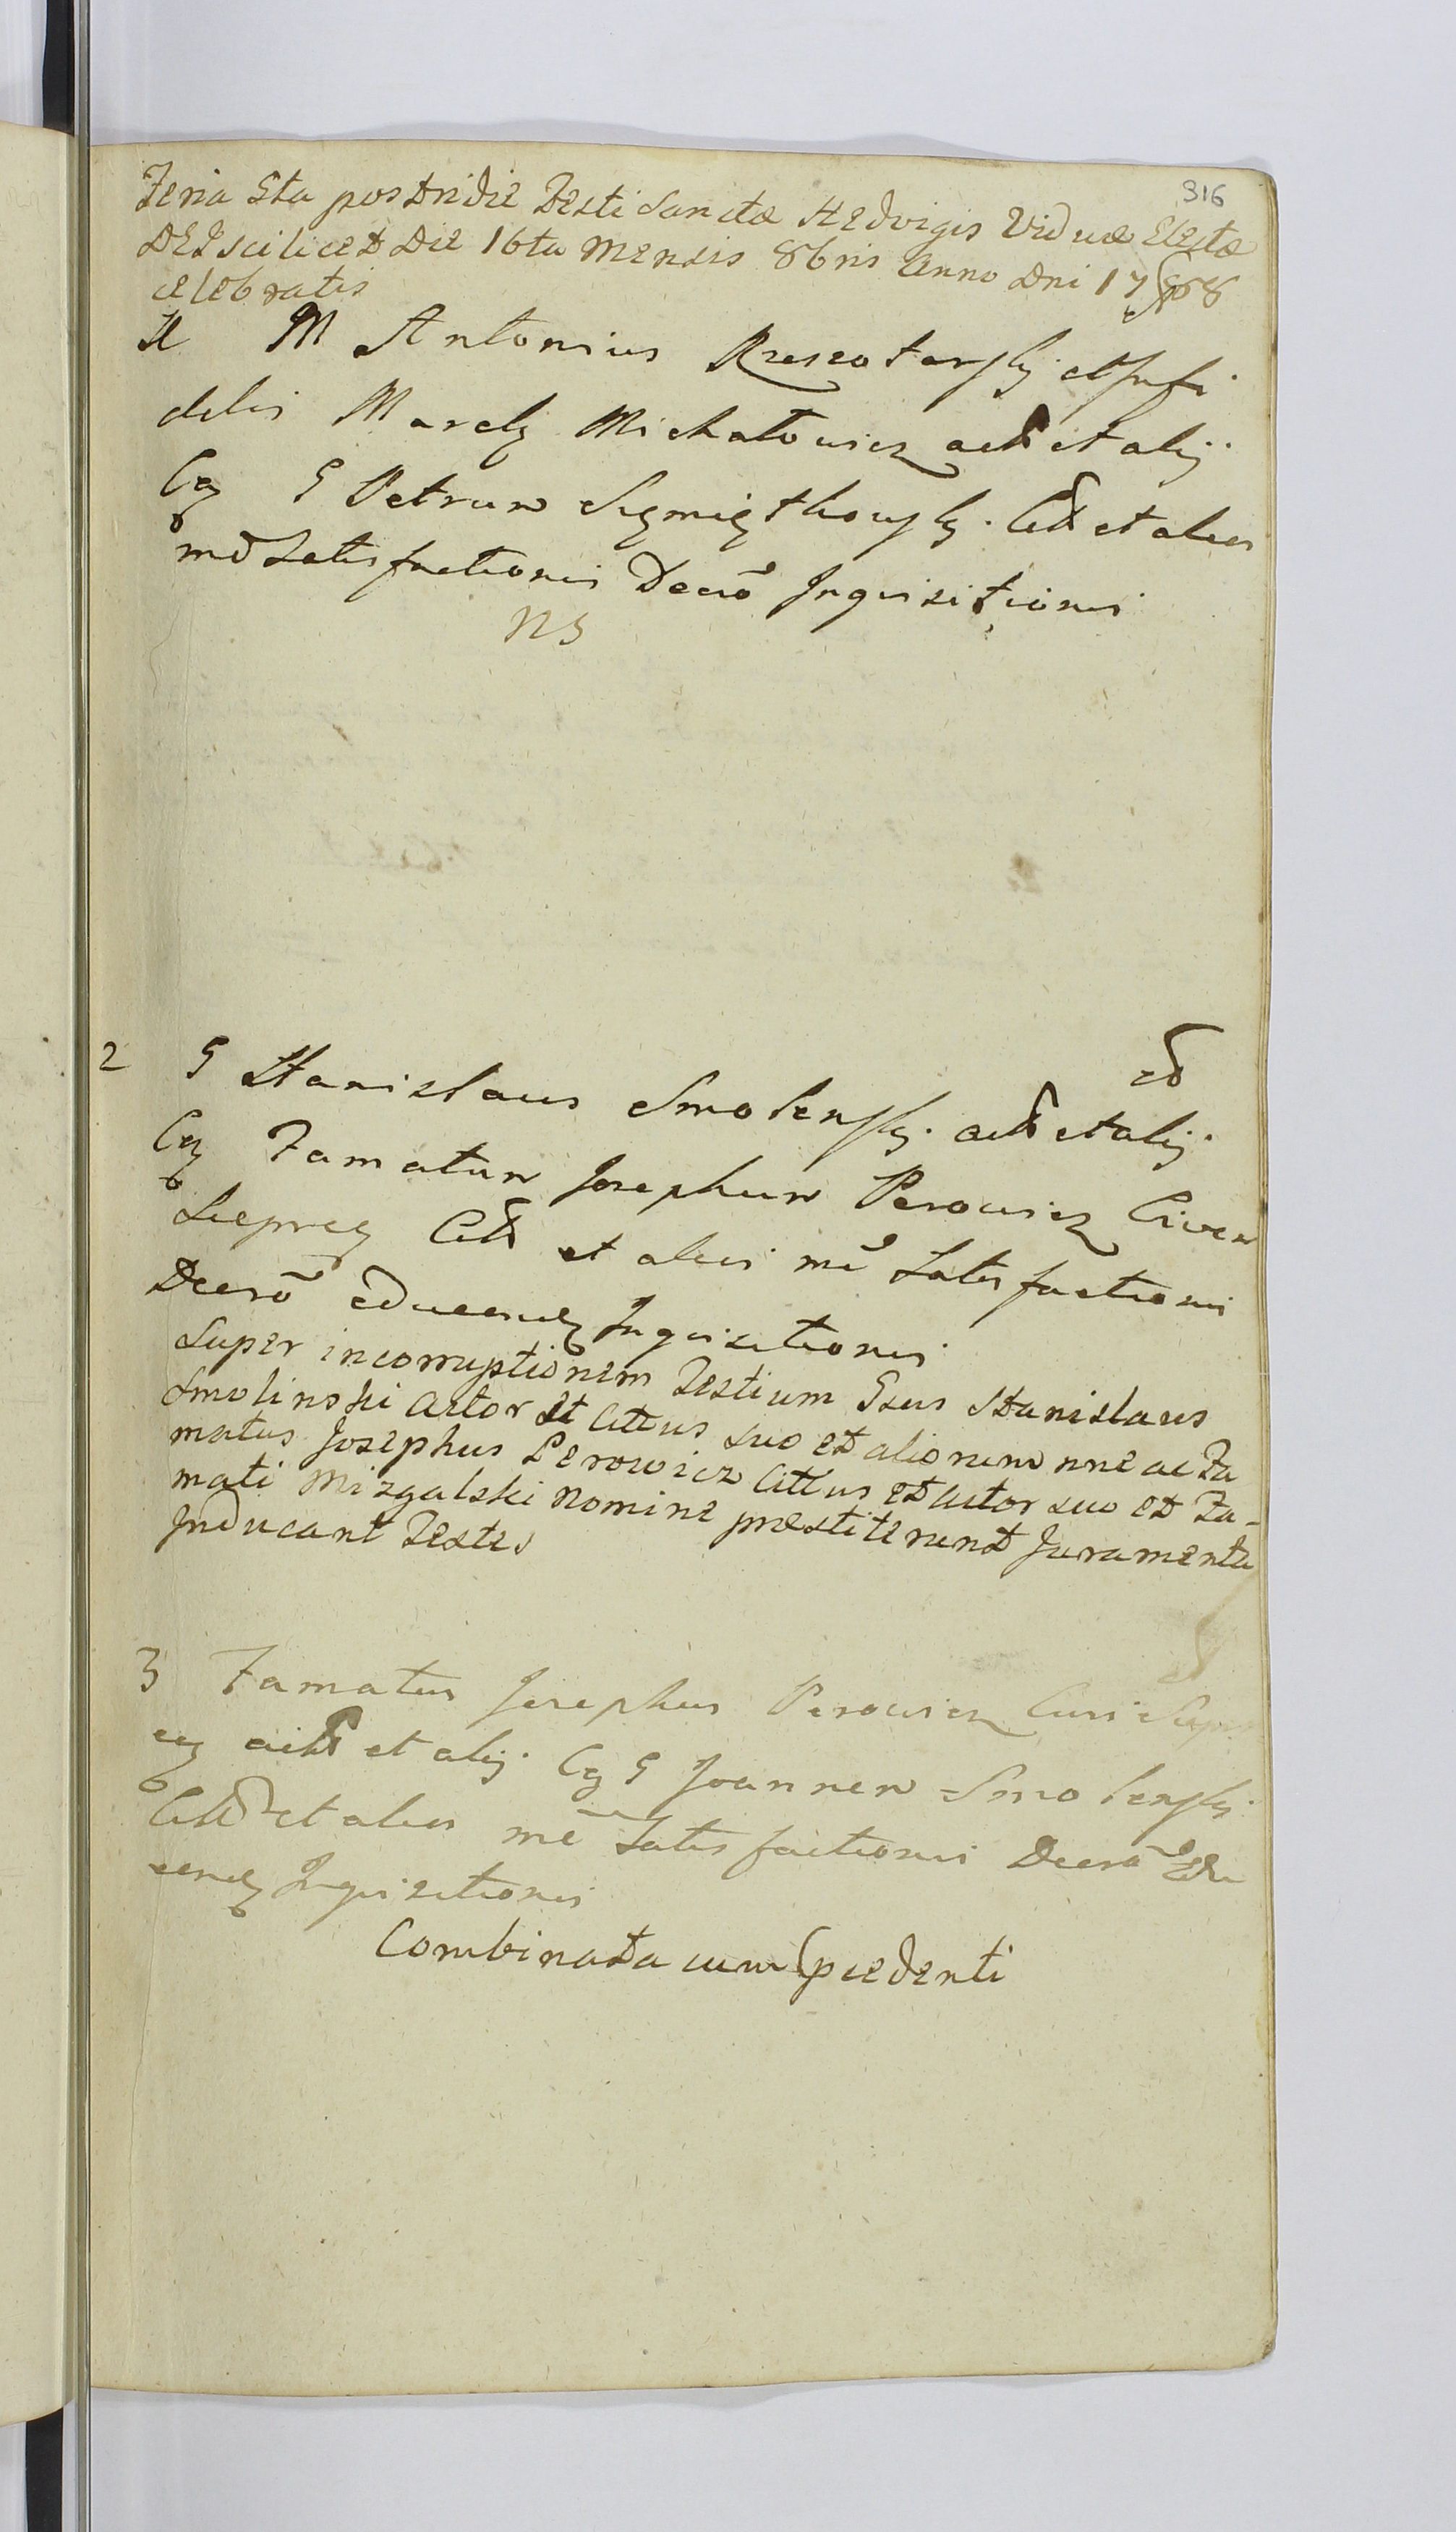 316
Feria 5ta postridie Festi Sanctæ Hedvigis Viduæ Electæ
DEI scilicet Die 16ta Mensis 8bris Anno Dni 1788
celebratis
M Antonius Rzeszotarsky et Infi
delis Marcly Michałowicz act et alij
Cą G Petrum Szmigthowsky Citt et alios
md Satisfactionis Decrō Inquisitionis
NS
2 G Stanislaus Smolensky act et alij
Cą Famatum Josephum Perowicz Civem
Sieprcz Citt et alios mē Satisfactionis
Decrō educendę Inquisitionis
Super incorruptionem Testium Gsus Stanislaus
Smolinski Actor et Cittus suo et aliorum nne ac Fa
matus Josephus Perowicz Cittus et Actor suo et Fa-
mati Mizgalski Nomine præstiterunt Juramenta
Inducant Testes
3 Famatus Josephus Perowicz Civis Siepr
cą act et alij Cą G Joannem Smolensky
Citt et alios mē Satisfactionis Decrō Edu
cendę Inquisitionis
Combinata cum pcedenti